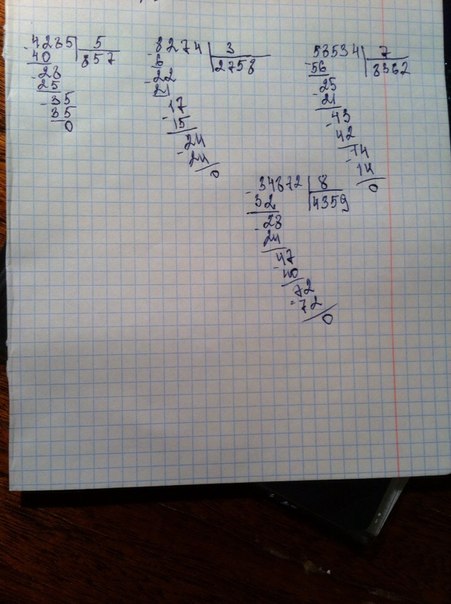 - 4285 | 5
40 | 857
- 28
25
- 35
35
0
- 8274 | 3
6 | 2758
- 22
21
- 17
15
- 24
24
0
58534 | 7
- 56 | 8362
- 25
21
- 43
42
- 14
14
0
- 34872 | 8
32 | 4359
- 28
24
- 47
40
- 72
72
0